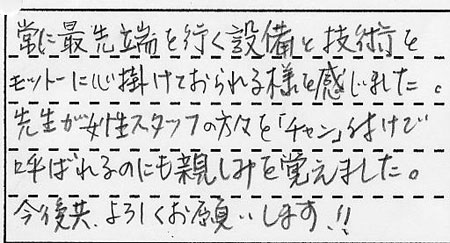 常に最先端を行く設備と技術を
モットーに心掛けておられる様を感じました。
先生が女性スタッフの方々を「チャン」付けで
呼ばれるのにも親しみを覚えました。
今後共、よろしくお願いします!!